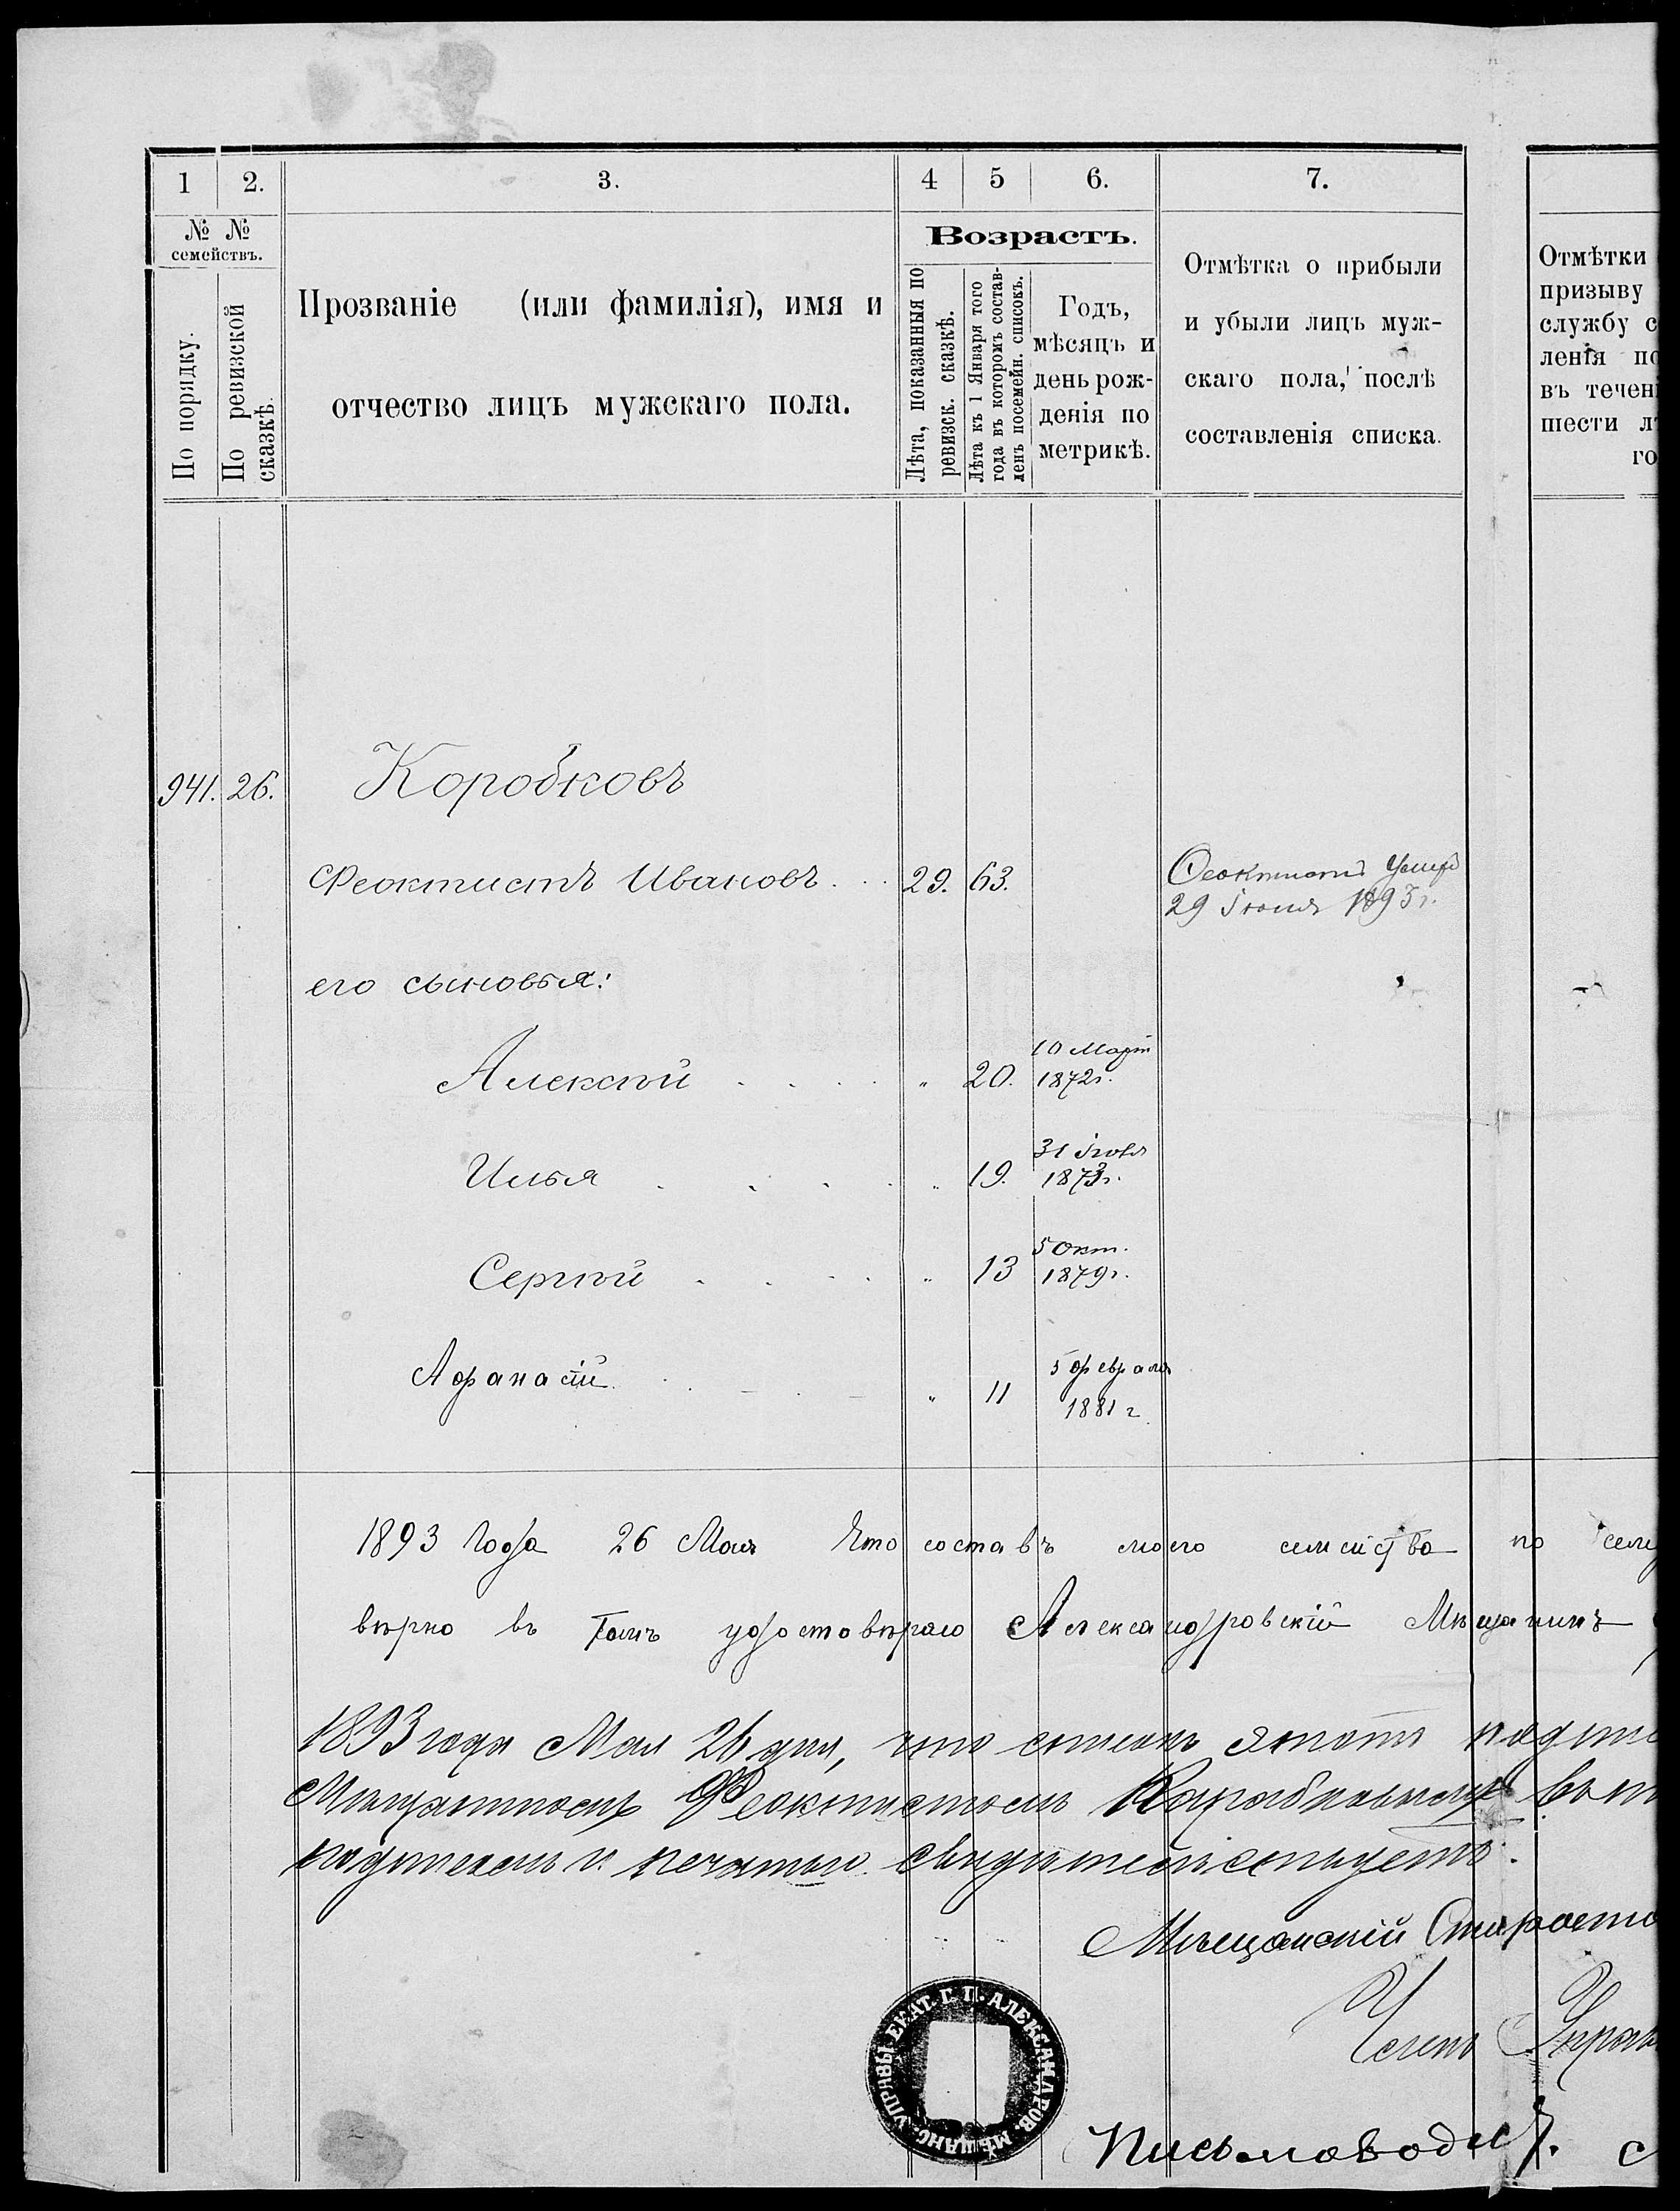 1 2. 3. 4 5 6. 7.
№ № семействъ.
По порядку.
По ревизской сказкѣ.
Прозваніе (или фамилія), имя и
отчество лицъ мужскаго пола.
Возрастъ.
Лѣта, показанныя по ревизск. сказкѣ.
Лѣта къ 1 Января того года въ которомъ составленъ посемейн. списокъ.
Годъ,
мѣсяцъ и
день рож-
денія по
метрикѣ.
Отмѣтка о прибыли
и убыли лицъ муж-
скаго пола, послѣ
составленія списка.
Отмѣтки
призыву
службу с
ленія по
въ течен
шести л
го
941. 26. Коробковъ
Феоктистъ Ивановъ . . . 29. 63. Феоктистъ Умеръ
29 Іюня 1893 г.
его сыновья:
Алексѣй . . . . „ 20. 10 Март 1872 г.
Илья . . . . „ 19. 31 Іюля 1873 г.
Сергѣй . . . . „ 13 5 Окт. 1879 г.
Афанасій . . . . „ 11 5 февраля 1881 г
1893 Года 26 Мая Что составъ моего семейства по сему
вѣрно въ томъ удостовѣраю Александровскій Мѣщанинъ
1893 года Мая 26 дня, что списокъ этотъ подпи
Мѣщаниномъ Феоктистомъ Коробковымъ въ
подписомъ и печатью свидѣтельствуетъ.
Мѣщанскій Старосто
Членъ Управ
Письмовод
МѢЩАНС. УПРАВЫ ЕКАТ. Г. П. АЛЕКСАНДРОВ.